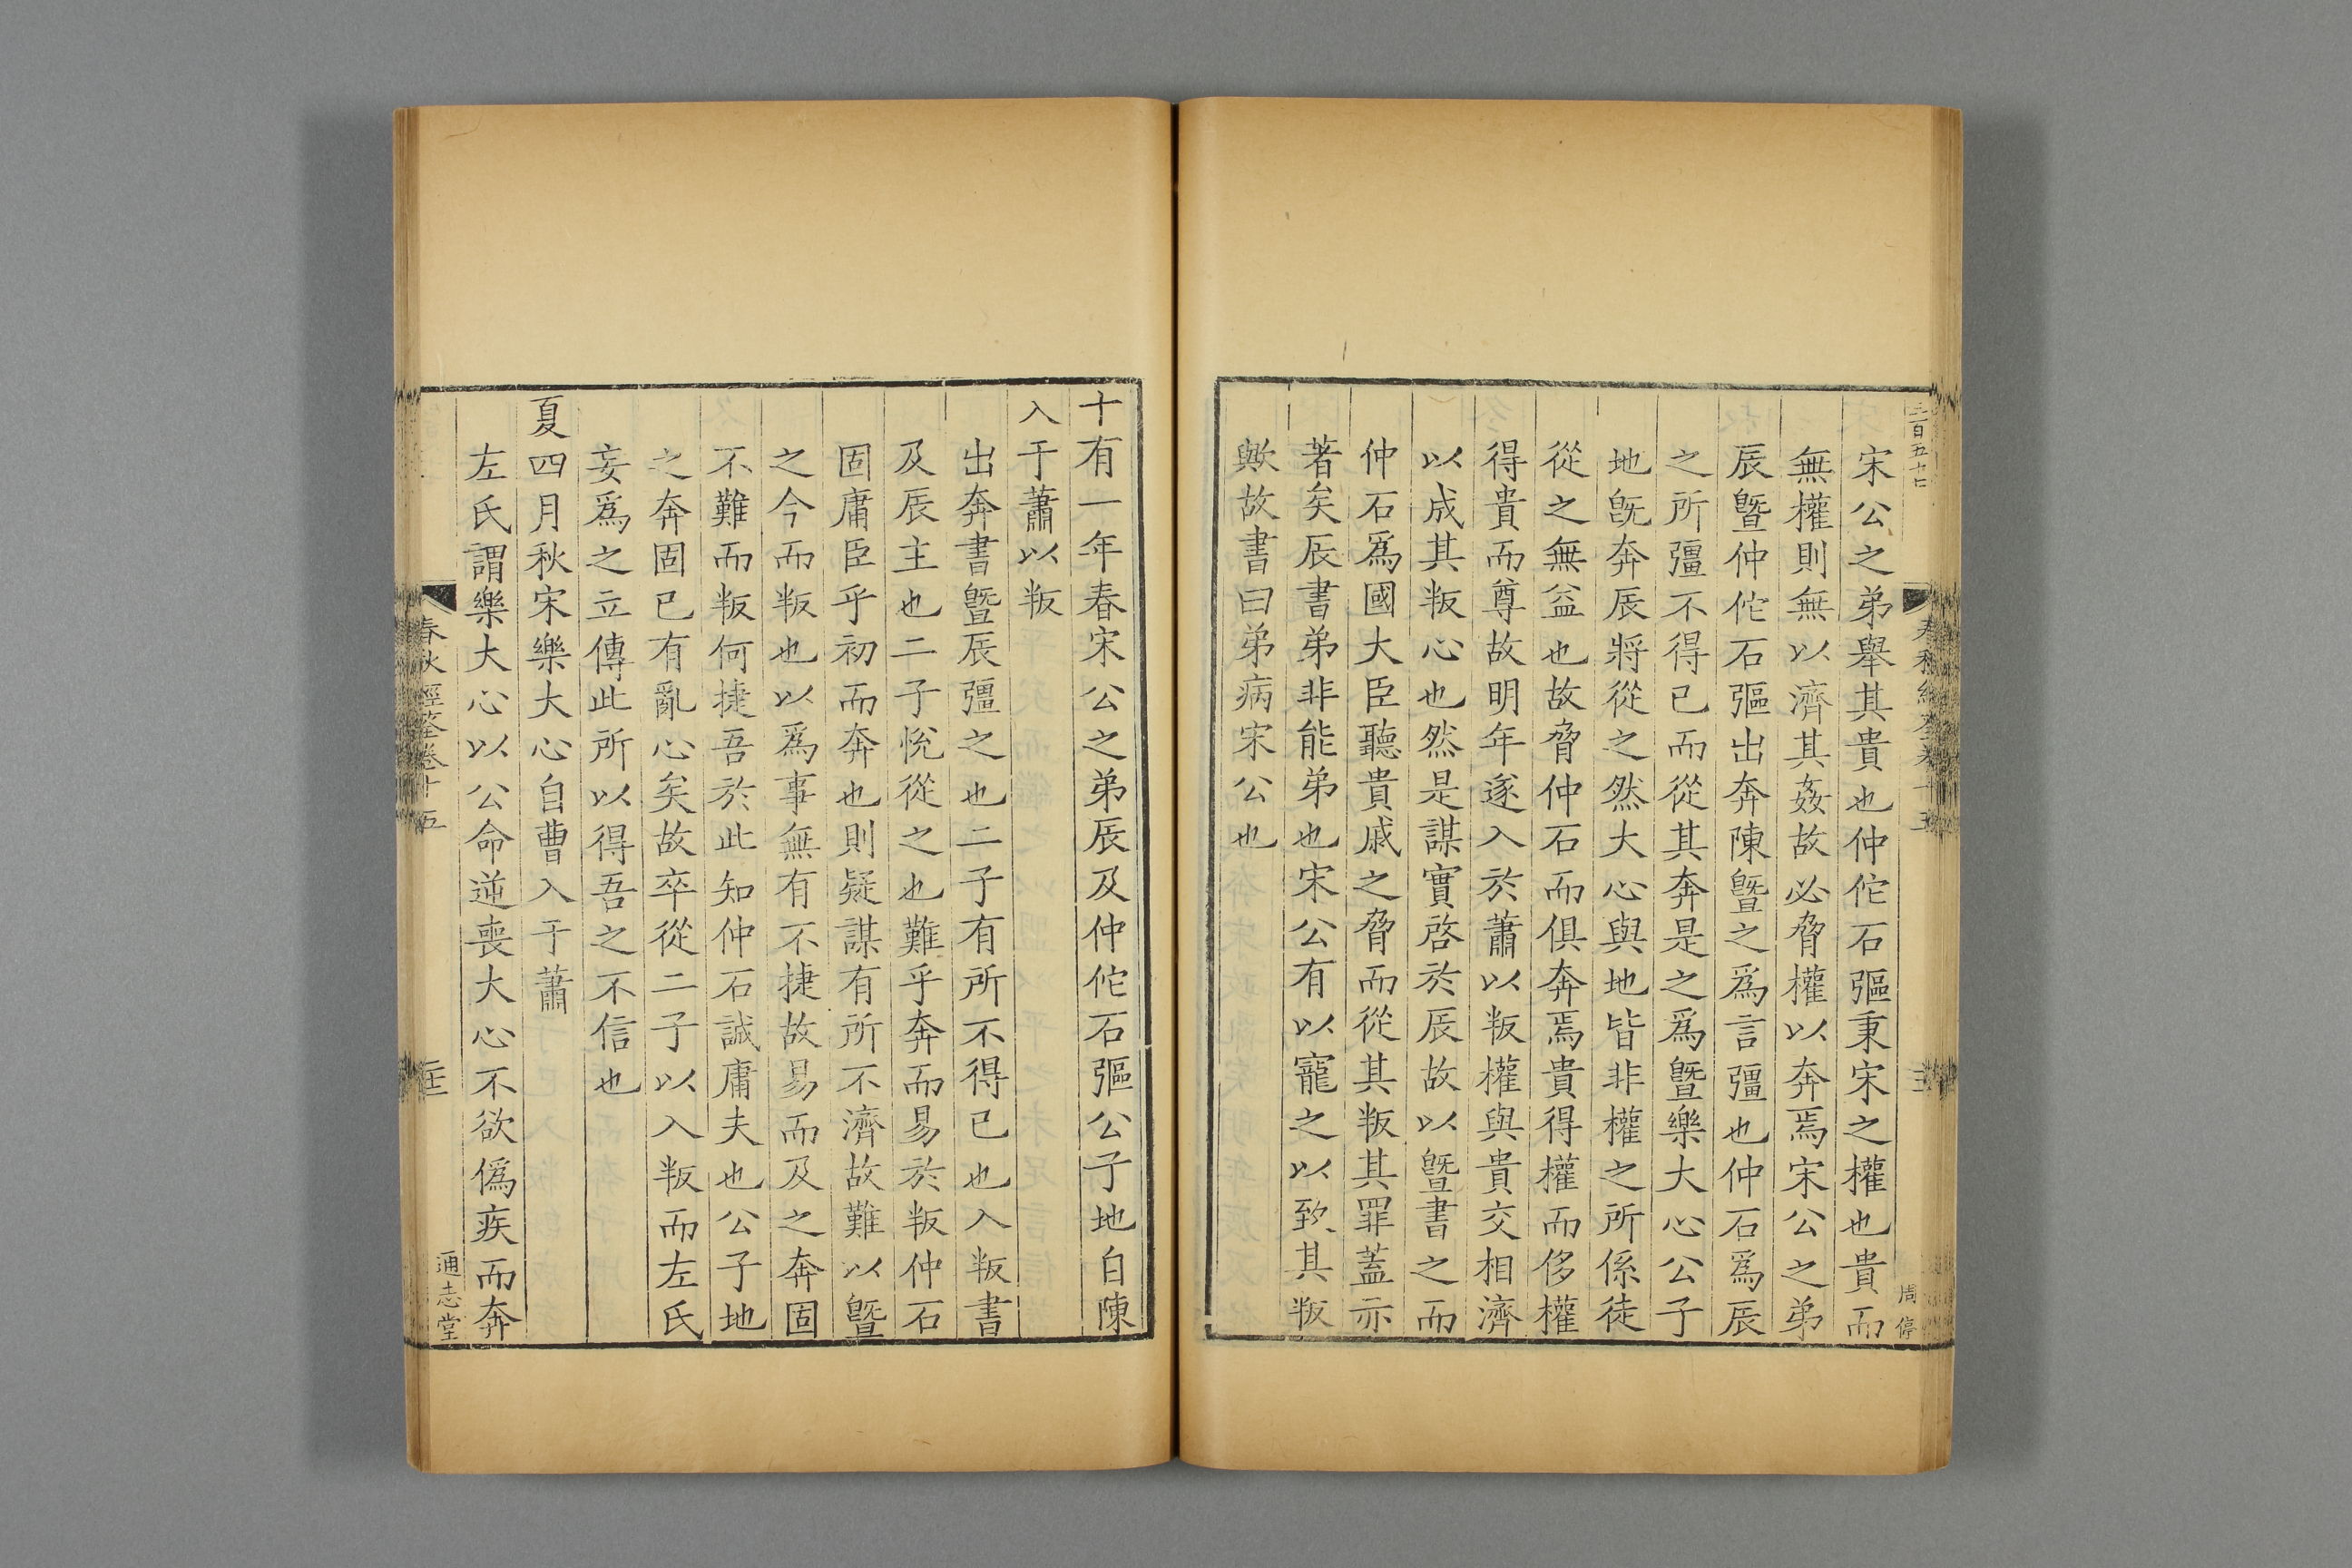 宋公之弟舉其貴也仲佗石彄秉宋之權也貴而
無權則無以濟其姦故必脅權以奔焉宋公之弟
辰暨仲佗石彄出奔陳暨之爲言彊也仲石爲辰
之所彊不得已而從其奔是之爲暨樂大心公子
地旣奔辰將從之然大心與地皆非權之所係徒
從之無益也故脅仲石而俱奔焉貴得權而侈權
得貴而尊故明年遂入於蕭以叛權與貴交相濟
以成其叛心也然是謀實啓於辰故以暨書之而
仲石爲國大臣聽貴戚之脅而從其叛其罪蓋亦
著矣辰書弟非能弟也宋公有以寵之以致其叛
歟故書曰弟病宋公也
周停
十有一年春宋公之弟辰及仲佗石彄公子地自陳
入于蕭以叛
出奔書暨辰彊之也二子有所不得已也入叛書
及辰主也二子悅從之也難乎奔而易於叛仲石
固庸臣乎初而奔也則疑謀有所不濟故難以暨
之今而叛也以爲事無有不捷故易而及之奔固
不難而叛何捷吾於此知仲石誠庸夫也公子地
之奔固已有亂心矣故卒從二子以入叛而左氏
妄爲之立傳此所以得吾之不信也
夏四月秋宋樂大心自曹入于蕭
左氏謂樂大心以公命逆喪大心不欲僞疾而奔
春秋經筌卷十五
通志堂